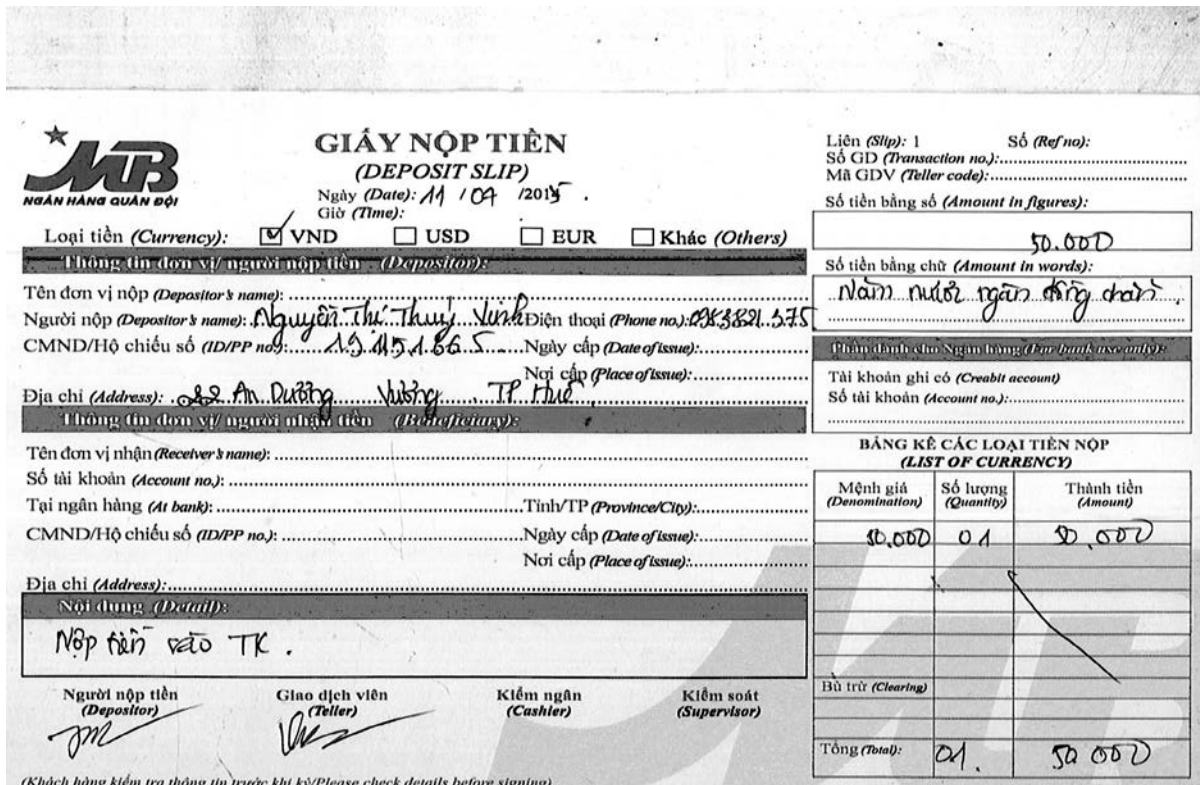 MB
NGÂN HÀNG QUÂN ĐỘI
GIẤY NỘP TIỀN
(DEPOSIT SLIP)
Ngày (Date): 11 / 04 /2015 .
Giờ (Time):
Loại tiền (Currency): VND USD EUR Khác (Others)
Thông tin đơn vị/ người nộp tiền (Depositor):
Tên đơn vị nộp (Depositor's name):
Người nộp (Depositor's name): Nguyễn Thị Thuỳ Vinh Điện thoại (Phone no.):
CMND/Hộ chiếu số (ID/PP no): Ngày cấp (Date of issue):
Nơi cấp (Place of issue):
Địa chỉ (Address): An Dương Vương TP Huế
Thông tin đơn vị/ người nhận tiền (Beneficiary):
Tên đơn vị nhận (Receiver's name):
Số tài khoản (Account no.):
Tại ngân hàng (At bank): Tỉnh/TP (Province/City):
CMND/Hộ chiếu số (ID/PP no.): Ngày cấp (Date of issue):
Nơi cấp (Place of issue):
Địa chỉ (Address):
Nội dung (Detail):
Nộp tiền vào TK .
Người nộp tiền Giao dịch viên Kiểm ngân Kiểm soát
(Depositor) (Teller) (Cashier) (Supervisor)
(Khách hàng kiểm tra thông tin trước khi ký/Please check details before signing)
Liên (Slip): 1 Số (Ref no):
Số GD (Transaction no.):
Mã GDV (Teller code):
Số tiền bằng số (Amount in figures):
50.000
Số tiền bằng chữ (Amount in words):
Năm mươi ngàn đồng chẵn .
Phần dành cho Ngân hàng (For bank use only):
Tài khoản ghi có (Creabit account)
Số tài khoản (Account no.):
BẢNG KÊ CÁC LOẠI TIỀN NỘP
(LIST OF CURRENCY)
Mệnh giá Số lượng Thành tiền
(Denomination) (Quantity) (Amount)
50.000 01 50.000
Bù trừ (Clearing)
Tổng (Total): 01. 50 000
MB